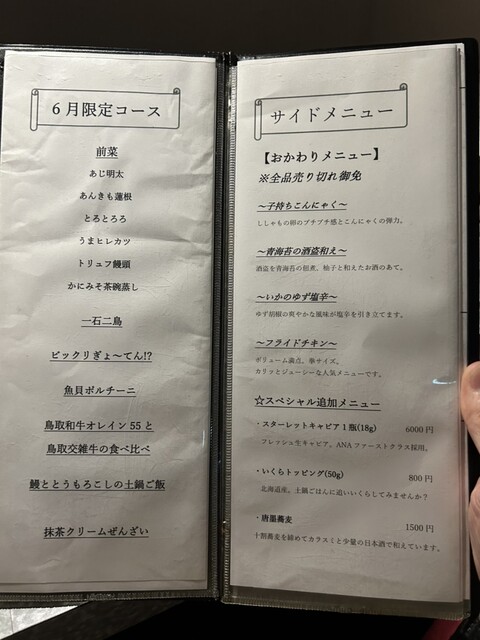 6月限定コース
前菜
あじ明太
あんきも蓮根
とろとろろ
うまヒレカツ
トリュフ饅頭
かにみそ茶碗蒸し
一石二鳥
ビックリぎょ〜てん!?
魚貝ポルチーニ
鳥取和牛オレイン55と
鳥取交雑牛の食べ比べ
鰻ととうもろこしの土鍋ご飯
抹茶クリームぜんざい
サイドメニュー
【おかわりメニュー】
※全品売り切れ御免
〜子持ちこんにゃく〜
ししゃもの卵のプチプチ感とこんにゃくの弾力。
〜青海苔の酒盗和え〜
酒盗を青海苔の佃煮、柚子と和えたお酒のあて。
〜いかのゆず塩辛〜
ゆず胡椒の爽やかな風味が塩辛を引き立てます。
〜フライドチキン〜
ボリューム満点、拳サイズ。
カリッとジューシーな人気メニューです。
☆スペシャル追加メニュー
・スターレットキャビア1瓶(18g) 6000円
フレッシュ生キャビア。ANAファーストクラス採用。
・いくらトッピング(50g) 800円
北海道産。土鍋ごはんに追いいくらしてみませんか?
・唐墨蕎麦 1500円
十割蕎麦を締めてカラスミと少量の日本酒で和えています。